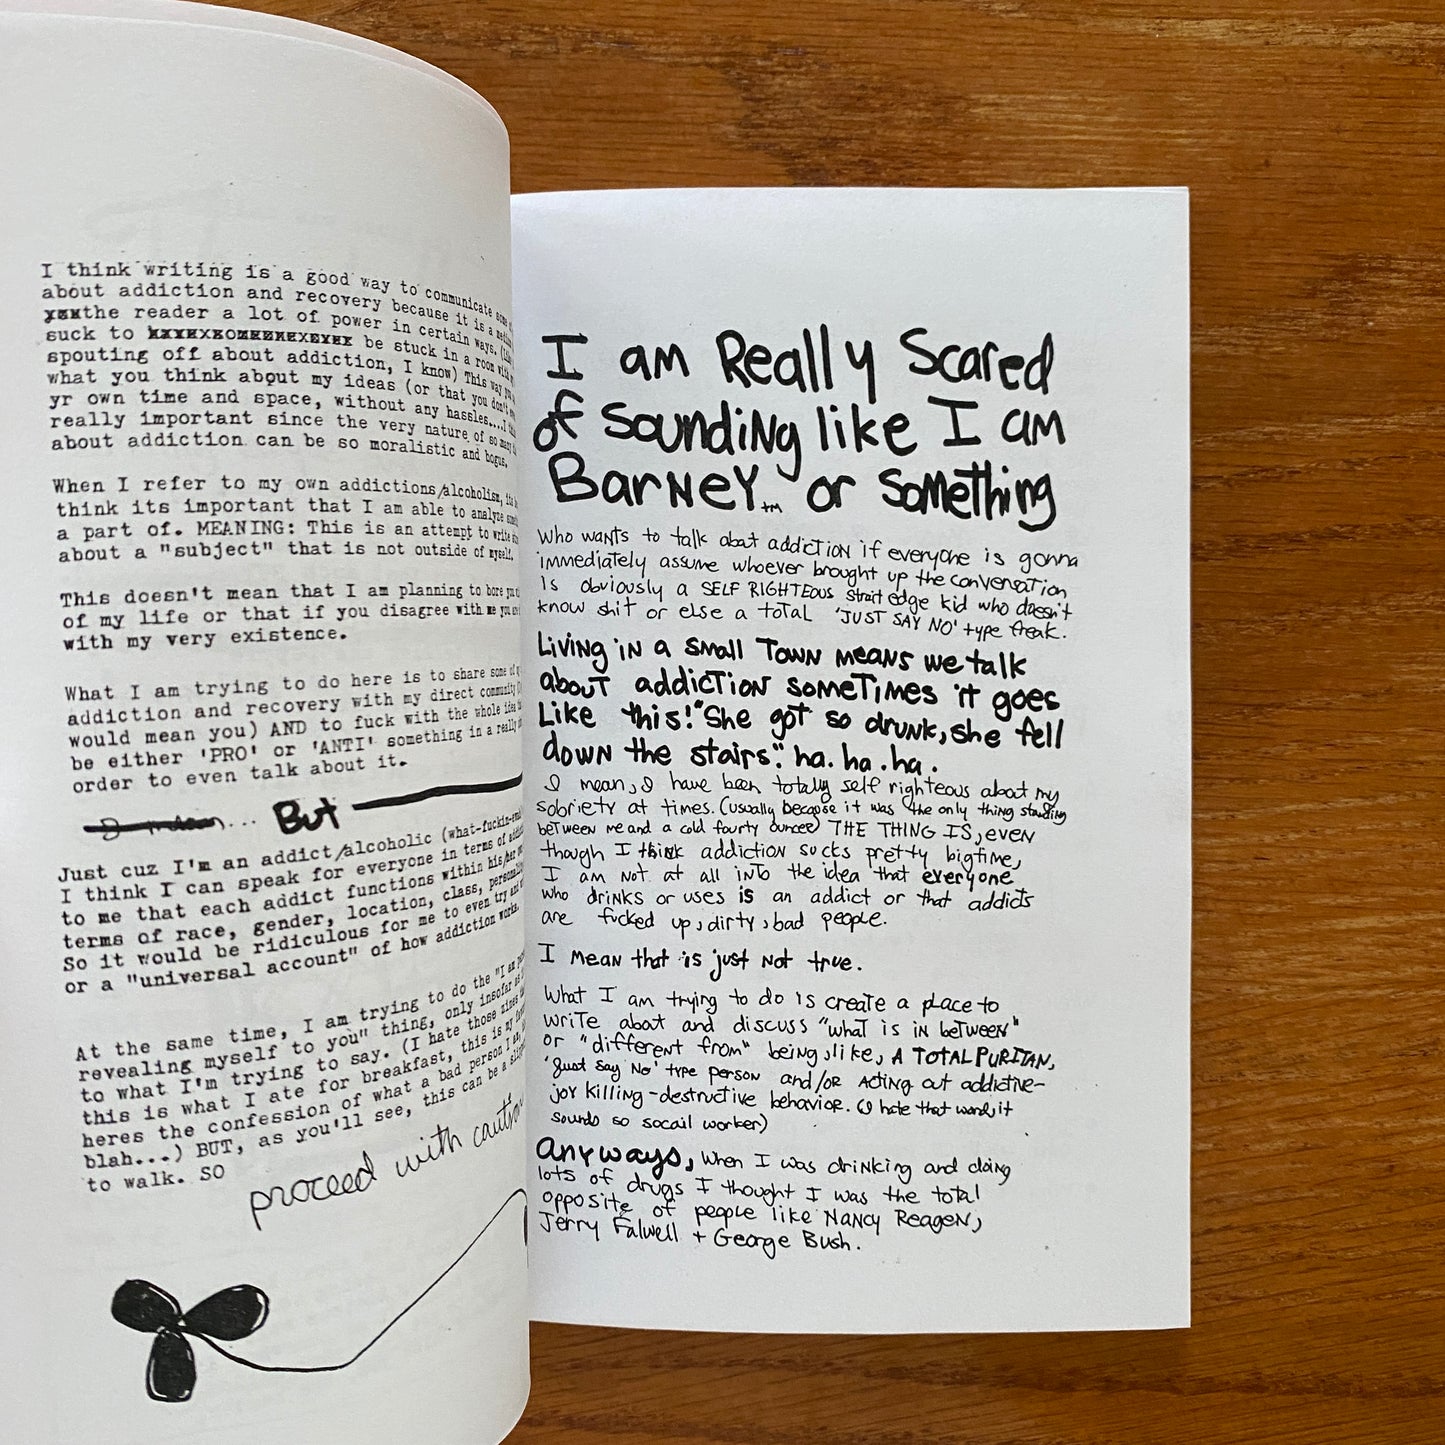 I think writing is a good way to communicate some
about addiction and recovery because it is a
the reader a lot of power in certain ways.
suck to be stuck in a room with
spouting off about addiction, I know) This way you
what you think about my ideas (or that you don't
yr own time and space, without any hassles....I
really important since the very nature of so many
about addiction can be so moralistic and bogus.
When I refer to my own addictions/alcoholism,
think its important that I am able to analyze
a part of. MEANING: This is an attempt to write
about a "subject" that is not outside of myself.
This doesn't mean that I am planning to bore you
of my life or that if you disagree with me you
with my very existence.
What I am trying to do here is to share some of
addiction and recovery with my direct community
would mean you) AND to fuck with the whole idea
be either 'PRO' or 'ANTI' something in a really
order to even talk about it.
... But
Just cuz I'm an addict/alcoholic
I think I can speak for everyone in terms of
to me that each addict functions within his/her
terms of race, gender, location, class,
So it would be ridiculous for me to even try and
or a "universal account" of how addiction works.
At the same time, I am trying to do the "I am
revealing myself to you" thing, only insofar as
to what I'm trying to say. (I hate those zines
this is what I ate for breakfast, this is my
heres the confession of what a bad person I am,
blah...) BUT, as you'll see, this can be a
to walk. SO
proceed with caution
I am Really Scared
of sounding like I am
BarNeY™ or something
Who wants to talk about addiction if everyone is gonna
immediately assume whoever brought up the conversation
is obviously a SELF RIGHTEOUS strait edge kid who doesn't
know shit or else a total 'JUST SAY NO' type freak.
Living in a small Town means we talk
about addiction sometimes it goes
Like this! "She got so drunk, she fell
down the stairs". ha. ha. ha.
I mean, I have been totally self righteous about my
sobriety at times. (usually because it was the only thing standing
between me and a cold fourty ouncer) THE THING IS, even
though I think addiction sucks pretty bigtime,
I am not at all into the idea that everyone
who drinks or uses is an addict or that addicts
are fucked up, dirty, bad people.
I mean that is just not true.
What I am trying to do is create a place to
write about and discuss "what is in between"
or "different from" being, like, A TOTAL PURITAN,
'Just Say No' type person and/or acting out addictive-
joy killing-destructive behavior. (I hate that word, it
sounds so socail worker)
anyways, when I was drinking and doing
lots of drugs I thought I was the total
opposite of people like Nancy Reagen,
Jerry Falwell + George Bush.